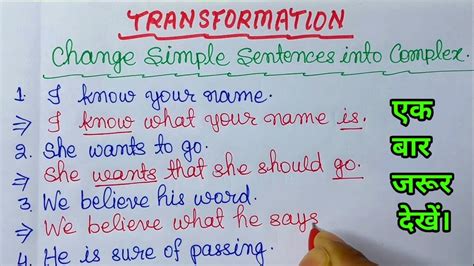 TRANSFORMATION
Change Simple Sentences into Complex.
1. I know your name.
⇒ I know what your name is.
2. She wants to go.
⇒ She wants that she should go.
3. We believe his word.
⇒ We believe what he says
4. He is sure of passing.
एक
बार
जरूर
देखें।